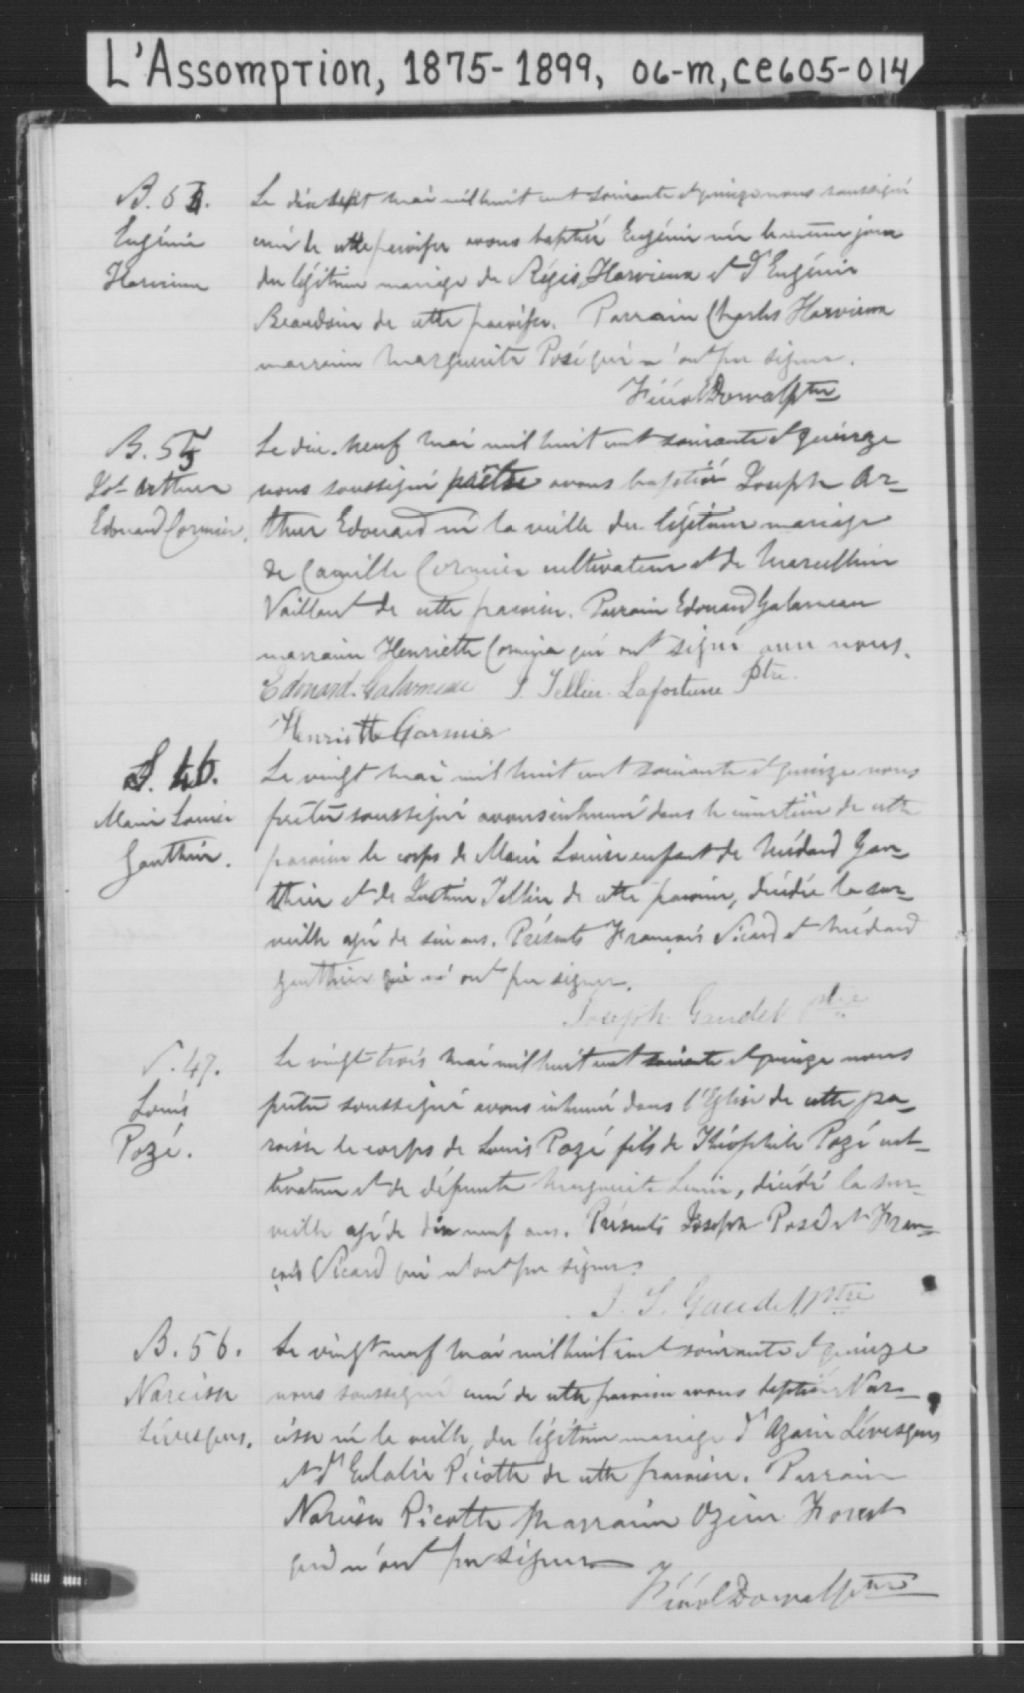 L'Assomption, 1875-1899, 06-m, ce605-014
B. 53.
Eugénie
Harvieux
Le dix sept mai mil huit cent soixante et quinze nous soussigné
curé de cette paroisse avons baptisé Eugénie née le même jour
du légitime mariage de Régis Harvieux et d'Eugénie
Beaudoin de cette paroisse. Parrain Charles Harvieux
marraine Marguerite Pozé qui n'ont pu signer.
Ptre
B. 55
Jos. Arthur
Edouard Cormier.
Le dix-neuf mai mil huit cent soixante et quinze
nous soussigné prêtre avons baptisé Joseph Ar-
thur Edouard né la veille du légitime mariage
de Camille Cormier cultivateur et de Marcelline
Vaillant de cette paroisse. Parrain Edouard Galarneau
marraine Henriette Cormier qui ont signé avec nous.
Edouard Galarneau J. Tellier Lafortune Ptre.
Henriette Cormier
S. 46.
Marie Louise
Gauthier.
Le vingt mai mil huit cent soixante et quinze nous
prêtre soussigné avons inhumé dans le cimetière de cette
paroisse le corps de Marie Louise enfant de Médard Gau-
thier et de Justine Tellier de cette paroisse, décédée la sur-
veille agé de six ans. Présents François Picard et Médard
Gauthier qui n'ont pu signer.
Joseph Gaudet ptre
S. 47.
Louis
Pozé.
Le vingt-trois mai mil huit cent soixante et quinze nous
prêtre soussigné avons inhumé dans l'Eglise de cette pa-
roisse le corps de Louis Pozé fils de Théophile Pozé cul-
tivateur et de défunte Marguerite, décédé la sur-
veille agé de dix neuf ans. Présents Joseph Pozé et Fran-
çois Picard qui n'ont pu signer.
J. S. Gaudet Ptre
B. 56.
Narcisse
Lévesque.
Le vingt neuf mai mil huit cent soixante et quinze
nous soussigné curé de cette paroisse avons baptisé Nar-
cisse né la veille, du légitime mariage d'Azarie Lévesque
et d'Eulalie Picotte de cette paroisse. Parrain
Narcisse Picotte Marraine Ozine Forest
qui n'ont pu signer
Ptre